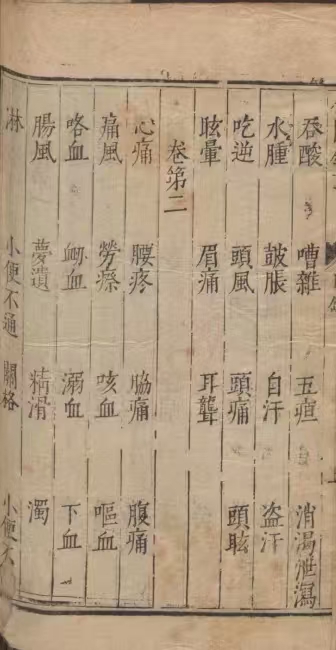 吞酸 嘈雜 五疸 消渴泄瀉
水腫 鼓脹 自汗 盜汗
吃逆 頭風 頭痛 頭眩
眩暈 眉痛 耳聾
卷第二
心痛 腰疼 脇痛 腹痛
痛風 勞瘵 咳血 嘔血
咯血 衂血 溺血 下血
腸風 夢遺 精滑 濁
淋 小便不通 關格 小便不